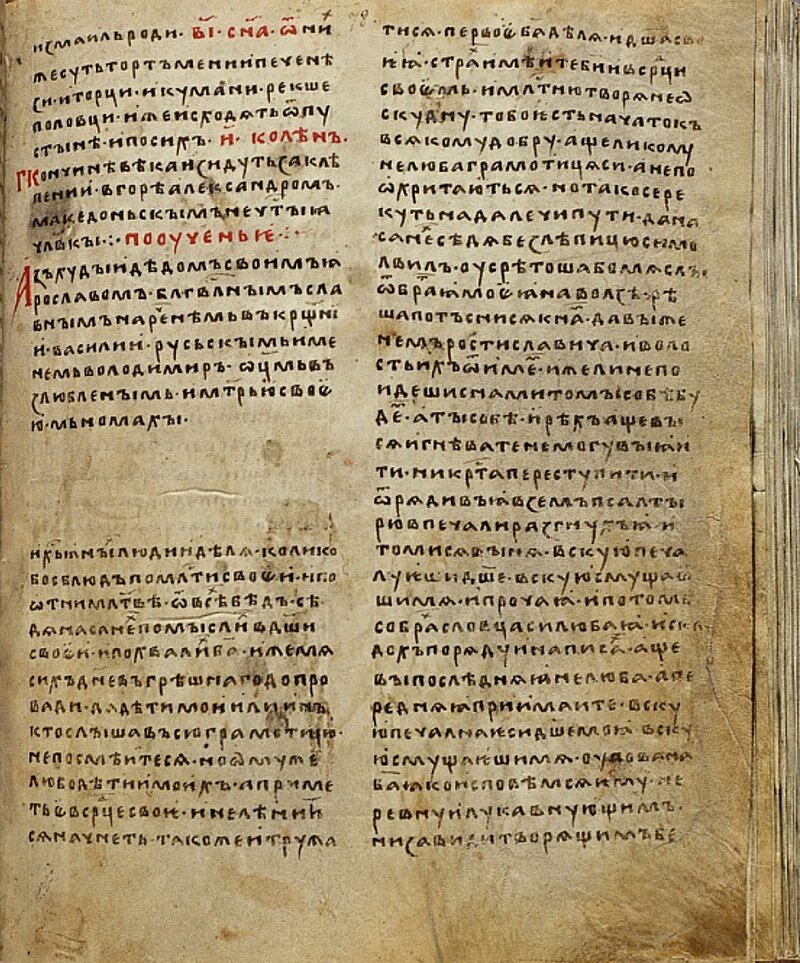 исмаильроди· в҃і· сн҃а· ѿни
жесутьтортъменииипеченѣ
зи·иторци·икумани·рекше
половци·ижеисходѧтьѿпу
стынѣ·ипосихъ·и҃·колѣнъ·
Кончинѣвѣкаизидутьзаклѣ
пении·вгорѣалександромъ·
македоньскымъ·нечт҃ыꙗ
чл҃вкы·:·пооученьѥ·:·
Азъхудыидѣдомъсвоимъꙗ
рославомъ·блг҃влн҃ымъсла
внымънарѣчнѣмьвъкрщ҃ні
и·василии·русьскымьиме
немьволодимиръ·ѡц҃мьвъ
злюбленымь·имт҃рьюсвоѥ
ю·мьномахы·
ихрьꙗныхлюдиидѣлѧ·колико
босблюдъпомлс҃тисвоѥи·ипо
ѡтнимлт҃вѣ·ѿвсѣхъбѣдъ·сѣ
дѧнасанехъпомыслихъвдш҃и
своѥи·ипохвалихъба҃·ижемѧ
сихъдневъгрѣшнагодопро
вади·дадѣтимоиилиинъ
ктослышавъсюграмотицю·
непосмѣитесѧ·ноѡмуже
любодѣтиимоихъ·априме
тьѥвсрд҃цесвоѥ·инелѣнити
сѧначнеть·такожеитружа
тисѧ·первоѥба҃дѣлѧ·идш҃асво
ѥꙗ·страхъимѣитеби҃ивъсрд҃ци
своѥмь·имлс҃тнютворѧнеѡ
скудну·тобоѥстьначатокъ
всѧкомудобру·ащеликому
нелюбаграмотицѧси·анепо
ѡхритаютьсѧ·нотакосерє
кутьнадалечипути·дана
санехъсѣдѧбезлѣпицюсимо
лвилъ·оусрѣтошабомѧслы
ѿбратьꙗмоѥꙗнаволзѣ·рѣ
шапотъснисѧкнамъ·давыже
немъростиславича·иволо
стьихъѿимемъ·ижелинепо
идешиснамитомысобѣбу
демъ·атысобѣ·ирѣхъащевы
сѧигнѣваетенемогувыꙗи
ти·никрт҃апереступити·и
ѿрѧдивъꙗвземъпсалты
рювпечалиразгнухъꙗ·и
томисѧвынѧ·вскуюпеча
луѥшидш҃е·вскуюсмущаѥ
шимѧ·ипрочаꙗ·ипотомь
собрахъсловцасилюбаꙗ·искла
дохъпорѧдуинаписахъ·аще
выпослѣднѧꙗнелюба·апе
реднѧꙗприимаите·вску
юпечалнаѥсидш҃емоꙗ·вску
юсмущаѥшимѧ·оуповаина
ба҃ꙗкоисповѣмсѧѥму·не
ревнуилукавнующимъ·
низавидитворѧщимъбе